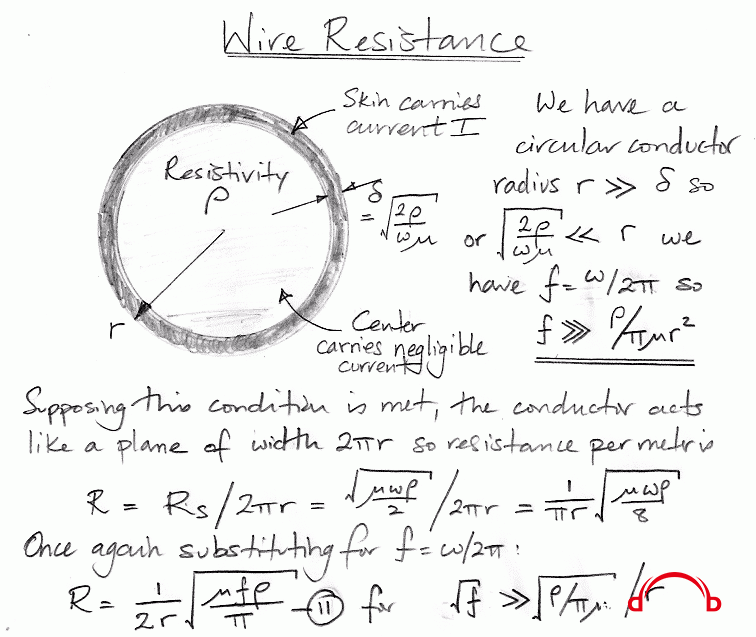 Wire Resistance
Skin carries
current I
Resistivity
ρ
δ
= √(2ρ/ωμ)
r
Center
carries negligible
current
We have a
circular conductor
radius r ≫ δ so
or √(2ρ/ωμ) ≪ r we
have f = ω/2π so
f ⋙ ρ/πμr²
Supposing this condition is met, the conductor acts
like a plane of width 2πr so resistance per metr is
R = Rs/2πr = √(μωρ/2) / 2πr = 1/πr √(μωρ/8)
Once again substituting for f = ω/2π :
R = 1/2r √(μfρ/π) – (11) for √f ≫ √(ρ/πμ) / r